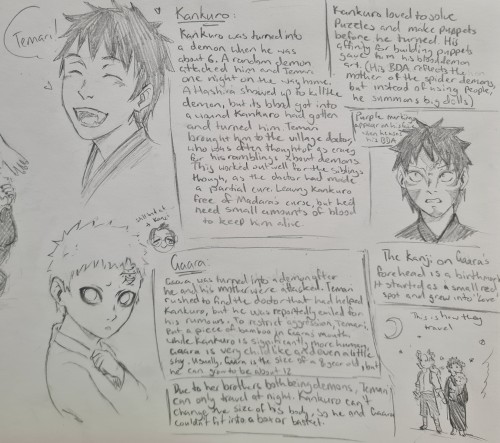 Temari!
Kankuro:
Kankuro was turned into
a demon when he was
about 6. A random demon
attacked him and Temari
one night on the way home.
A Hashira showed up to kill the
demon, but its blood got into
a wound Kankuro had gotten
and turned him. Temari
brought him to the village doctor,
who was often thought of as crazy
for his ramblings about demons.
This worked out well for the siblings
though, as the doctor had made
a partial cure. Leaving Kankuro
free of Madara's curse, but he'd
need small amounts of blood
to keep him alive.
Kankuro loved to solve
Puzzles and make puppets
before he turned. His
affinity for building puppets
gave him his blood demon
art. (His BDA reflects the
mother of the spider demons,
but instead of using people,
he summons big dolls)
Purple markings
appear on his face
when he uses
his BDA
Gaara:
Gaara was turned into a demon after
he and his mother were attacked. Temari
rushed to find the doctor that had helped
Kankuro, but he was reportedly exiled for
his rumours. To restrict aggression, Temari
put a piece of bamboo in Gaara's mouth.
While Kankuro is significantly more human,
Gaara is very childlike and even a little
shy. Usually, Gaara is the size of a 8 year old, but
he can grow to be about 12
Due to her brothers both being demons, Temari
can only travel at night. Kankuro can't
change the size of his body, so he and Gaara
couldn't fit into a box or basket.
The Kanji on Gaara's
forehead is a birthmark
It started as a small red
spot and grew into 'Love'
This is how they
travel